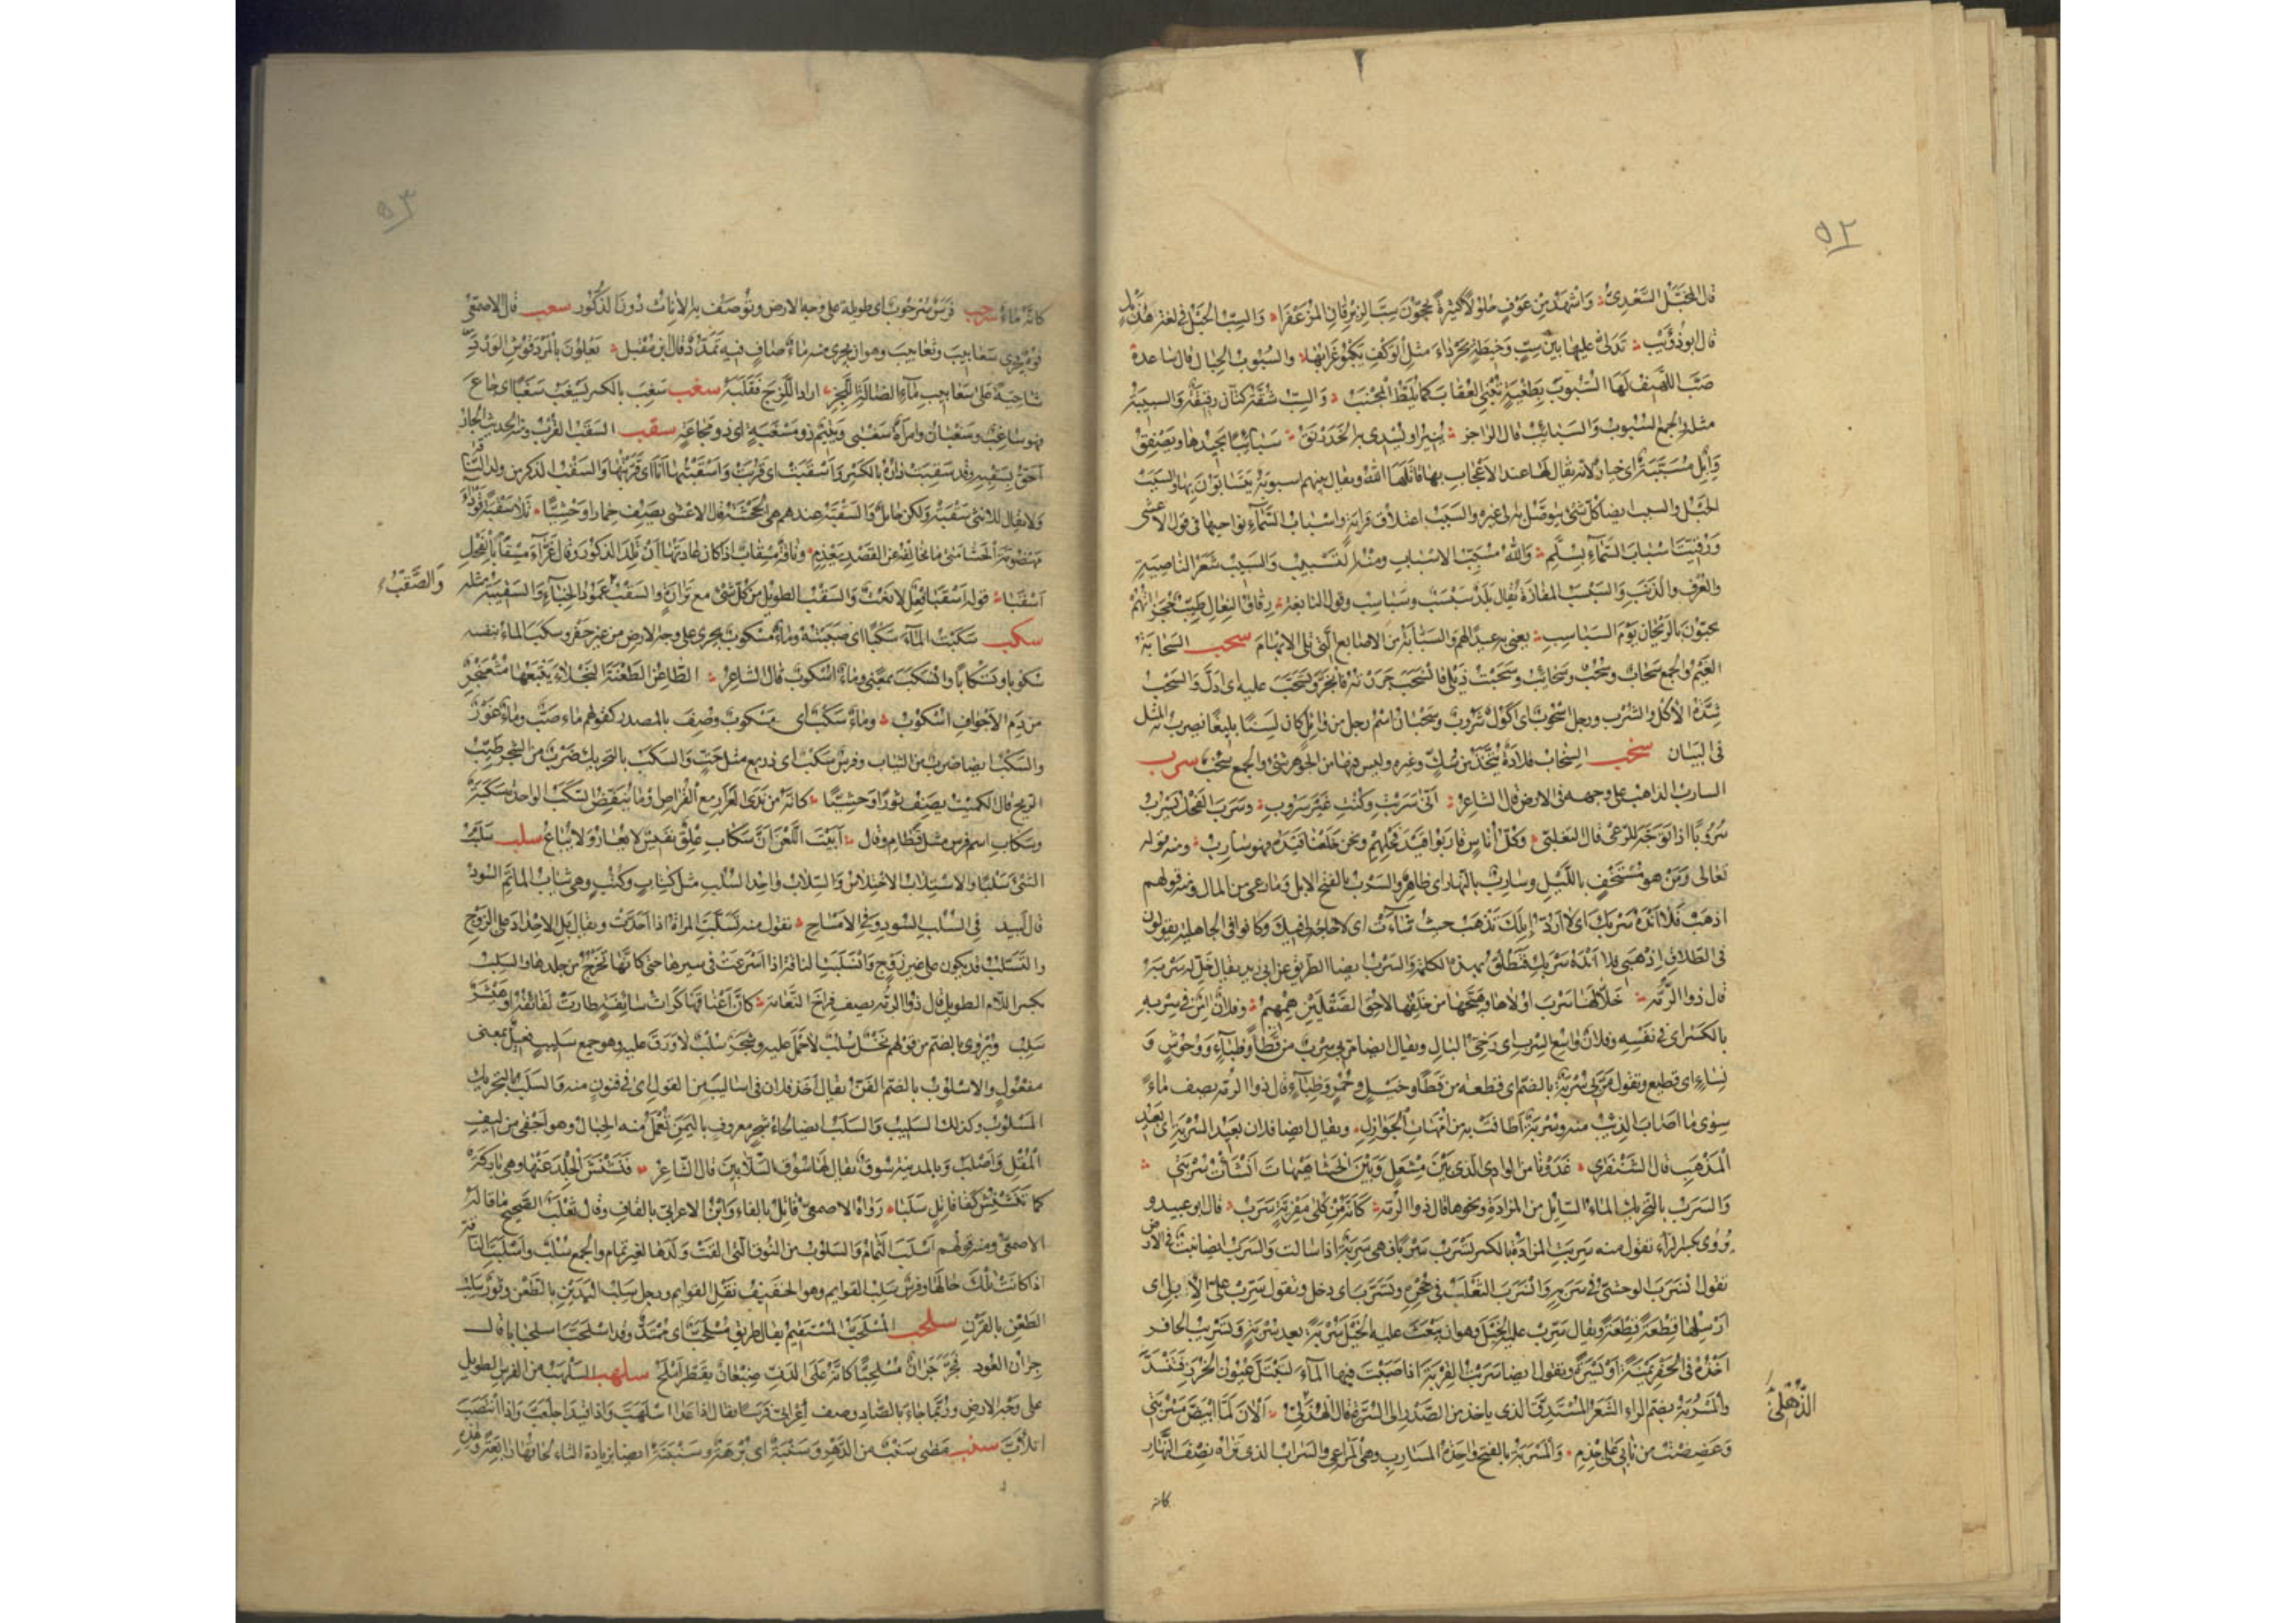 ٥٢
قال المخبل السعدى وَاَشهَدُ مِن عَوفٍ حُلُولاً كَثِيرَةً يَحُجّونَ سِبَّ الزِبرِقَانِ المُزَعفَرَا والسِبّ الحَبل فى لغة هُذَيل
قال ابو ذُؤَيب تَدَلَّى عليها بين سِبٍّ وَخَيطَةٍ بجَردَاءَ مثلِ الوَكفِ يَكبُو غُرَابُهَا والسُبُوب الحِبال قال ساعدة
صَبَّ اللَّهِيف لَهَا السُّبُوبَ بِطَغيَةٍ تُنبِى العُقَابَ كما يُلَطُّ المِجنَبُ وَالسِبّ شُقَّة كتّان رقيقَة والسبيبَة
مثله والجمع السُبُوبُ والسَبَائِبُ قال الراجز يُنِيرُ او يُسدِى به الخَدَرنَقُ سَبَائِباً يُجِيدُهَا ويُصَفِّقُ
وَاِبِل مُسَبَّبَة اى خيار لانه يقال لها عند الاعجاب بها قاتلها الله ويقال بينهم اسبوبة يتسابّون بها والسَبَب
الحَبل والسبب ايضا كل شئ يتوصّل به الى غيره والسَبَب اعتلاق قرابة واسباب السَّمَآءِ نواحيها فى قول الاعشى
وَرُقِّيتَ اسبَابَ السَّمَآءِ بِسُلَّمِ والله مُسَبِّب الاسباب ومنه التَسبِيب والسَبِيب شَعَر الناصِيَة
والعُرف والذَنَب وَالسَبسَب المفازة يقال بَلَد سَبسَب وسَبَاسِب وقول النابغة رِقَاقُ النِعَالِ طَيِّبٌ حُجُزَاتُهُم
يُحَيَّونَ بالرَيحَانِ يَوم السَبَاسِبِ يعنى به عيدًا لهم والسَبَّابَة من الاصابع الَّتى تلى الابهَامَ سحب السَحَابَة
الغَيم والجمع سَحَاب وسُحُب وسَحَائِب وسَحَبت ذيلى فانسَحَبَ جَرَرته فانجَرّ وتسَحَّبَ عليه اى ادلّ والسَحب
شِدّة الاكل والشرب ورجل اُسحُوب اى اَكُول شَرُوب وسَحبَان اسم رجل من وائل كان لَسِنًا بليغًا يُضرب به المثل
فى البيَان سخب السِّخَاب قلادة تُتَّخَذ من سُكٍّ وغيره وليس فيها من الجوهر شئ والجمع سُخُب سرب
السارب الذاهب على وجهه فى الارض قال الشاعر اَنَّى سَرَبتِ وكُنتِ غَيرَ سَرُوبِ وسَرَبَ الفَحل يَسرُبُ
سُرُوبًا اذا تَوَجَّهَ للرَعى قال التغلبى وَكُلّ اُنَاسٍ قَارَبُوا قَيدَ فَحلِهِم ونحن خَلَعنَا قَيدَه فهو سَارِبُ ومنه قوله
تعالى وَمَن هو مُستَخفٍ بِاللَّيل وسارب بالنهار اى ظاهر والسَرب بالفتح الابل وما رعى من المال ومنه قولهم
اذهَب فَلَا اَندَهُ سَربَكَ اى لا اَرُدّ اِبِلَكَ تَذهَب حيث شَاءَت اى لا حاجة لى فيك وكانوا فى الجاهلية يقولون
فى الطَلاق اِذهَبِى فلا اَندَهُ سَربَكِ فَتُطَلَّقُ بهذه الكلمة والسَرب ايضا الطريق عن ابى زيد يقال خَلِّ له سَربَهُ
قال ذو الرُمّة خَلَّى لَهَا سَربَ اُولاهَا وهَيَّجَهَا من خَلفِهَا لَاحِقُ الصُقلَينِ هِمهِيمُ وفلان اٰمِن فى سِربِهِ
بالكَسر اى فى نَفسِهِ وفلان وَاسِع السِربِ اى رَخِىّ البَالِ ويقال ايضا مَرّ بى سِرب من قَطًا وظِبَآءٍ ووُحُوشٍ و
نِسَاءٍ اى قطيع وتقول مَرّ بى سُربَة بالضم اى قطعة من قَطًا وخَيلٍ وحُمُرٍ وظِبَآءٍ قال ذو الرمة يصف مَاءً
سِوَى مَا اَصَابَ الذِئبُ منه وسُربَةٌ اَطَافَت به من اُمَّهَاتِ الجَوَازِلِ ويقال ايضا فلان بَعِيد السُربَةِ اى بَعِيد
المَذهَب قال الشَنفَرَى غَدَونَا من الوادى الذى بَينَ مِشعَلٍ وَبَينَ الحَشَا هَيهَاتَ اَنشَأتُ سُربَتِى
وَالسَرَب بالتحريك الماء السائل من المزادة ونحوها قال ذو الرمّة كَاَنَّه مِن كُلَى مَفرِيَّةٍ سَرَبُ قال ابو عبيد و
يُروى بكسر الراء تقول منه سَرِبَتِ المزادة بالكسر تَسرَب سَرَبًا فهى سَرِبَة اذا سالت والسَرَب ايضا بيت فى الارض
تقول انسَرَبَ الوحشىّ فى سَرَبِهِ وَانسَرَبَ الثَعلَب فى جُحرِهِ وتَسَرَّبَ اى دخل وتقول سَرِّب علىّ الاِبِل اى
اَرسِلها قِطعَةً قِطعَةً ويقال سَرَّب عليه الخَيل وهو ان يَبعَثَ عليه الخَيل سُربَةً بعد سُربَةٍ وتَسرِيب الحافر
اَخذُه فى الحَفر يَمنَةً اَو يَسرَةً وتقول ايضا سَرَّبتُ القِربَة اذا صَبَبتَ فيها المآءَ لتَبتَلّ عُيُون الخُرَز فَتَنسَدّ
والمَسرُبَة بضم الراء الشَعَر المُستَدِقّ الذى ياخذ من الصَّدر الى السُرّة قال الهُذَلِىّ اَلآنَ لَمّا ابيَضَّ مَسرُبَتِى
الذُّهلِىّ
وعَضَضتُ من نَابِى عَلَى جِذمِ وَالمَسرَبَة بالفتح واحدة المَسَارِب وهى المراعى والسَرَاب الذى تَرَاه نِصفَ النَّهَار
كانه
٥٣
كانّه مَاءٌ سرحب فَرَس سُرحُوب اى طويلة على وجه الارض وتُوصَف به الاناث دُونَ الذُكُور سعب قال الاصمعى
فُوهُ يَجرى سَعَابِيبَ وثَعَابِيبَ وهو ان يجرى منه مَاءٌ صَافٍ فيه تَمَدُّد قال ابن مُقبِل يَعلُونَ بالمَردَقُوشِ الوَردَ
ضَاحِيَةً عَلَى سَعَابِيبِ مَاءِ الضَالَةِ اللَّجِزِ اراد اللَّزِجَ فَقَلَبَهُ سغب سَغِبَ بالكسر يَسغَبُ سَغَبًا اى جَاعَ
فهو سَاغِب وسَغبَان وامرأة سَغبَى ويَتِيم ذو مَسغَبَةٍ اى ذو مَجَاعَةٍ سقب السَقَب القُرب ومنه الحديث الجار
اَحَقّ بِسَقَبِه وقد سَقِبَت دَارُه بالكَسر وَاَسقَبَت اى قَرُبَت وَاَسقَبتُهَا اَنَا اى قَرَّبتُهَا والسَقب الذكر من ولد الناقة
ولا يقال للانثى سَقبَة ولكن حَائِل وَالسَقبَة عندهم هى الجَحشَة قال الاعشى يصف حمارا وَحشِيًّا تَلَا سَقبَةً قَودَاءَ
مَهضُومَةَ الحَشَا متى ما تخالفه عن القَصدِ يَعذِمِ وناقة مِسقَاب اذا كان عادتها اَن تَلِدَ الذكور وقال غَرَّاءَ مِسقَابًا لِفَحلٍ
اَسقَبَا قوله اَسقَبَا فِعل لا نَعت وَالسَقب الطويل من كل شئ مع تَرَارَة وَالسَقب عَمُود الخِبَآءِ وَالسَقِيبَة مثله
وَالصَّقبُ
سكب سَكَبتُ المآءَ سَكبًا اى صَبَبتُهُ ومَاء مَسكُوب يجرى على وجه الارض من غير حَفر وسكب الماء بنفسه
سُكُوبا وتَسكَابًا وانسَكَبَ بمعنى ومَاء اُسكُوب قال الشاعر الطاعِن الطَعنَةَ النَجلَاءَ يَتبَعُهَا مُثعَنجِرٌ
من دَمِ الاَجوَافِ اُسكُوبُ وماء سَكب اى مسكوب وصف بالمصدر كقولهم ماء صَبّ وماء غَور
والسَكب ايضا ضرب من الثياب وفرس سَكب اى ذريع مثل حَتّ وَالسَكَب بالتحريك ضرب من الشجر طَيِّب
الريح قال الكميت يصف ثورًا وحشيًّا كانّه من نَدَى العَرَار مع القُرّاص او ما يُنَفِّضُ السَكَبُ الواحدة سَكَبَةٌ
وسَكَابِ اسم فرس مثل قَطَامِ وقال اَبَيتَ اللَّعنَ اِنَّ سَكَابِ عِلقٌ نَفِيسٌ لا يُعَارُ ولا يُبَاعُ سلب سَلَبتُ
الشئَ سَلبًا والاستلاب الاختلاس والسِلَاب واحد السُلُب مثل كِتَابٍ وكُتُبٍ وهى ثياب المأتم السُود
قال لبيد فى السُّلُبِ السُودِ وفى الامسَاحِ تقول منه تسَلَّبَتِ المراة اذا اَحَدَّت ويقال بَلِ الاِحدَاد على الزوج
والتَسَلُّب قد يكون على غير زَوجٍ وَانسَلَبَتِ الناقة اذا اَسرَعَت فى سيرها حتى كانّها تَخرُجُ من جلدها والسَلِب
بكسر اللام الطويل قال ذو الرمّة يصف فِرَاخ النَعَامَة كَاَنَّ اَعنَاقَهَا كُرَّاثُ سَائِفَةٍ طَارَت لَفَائِفُه اَو هَيشَرٌ
سَلِبُ ويُروى بالضم من قولهم نَخل سُلُب لا حَملَ عليه وشَجَر سُلُب لا وَرَقَ عليه وهو جمع سَلِيب فَعِيل بمعنى
مفعول والاسلوب بالضم الفَنّ يقال اخذ فلان فى اساليب من القول اى فى فنون منه والسَلَب بالتحريك
المسلوب وكذلك السَلِيب وَالسَلَب ايضا لِحَاءُ شجر معروف باليَمَن تُعمَل منه الحِبَال وهو اَجفَى من ليف
المُقل وَاَصلَب وبالمدينة سُوق يقال لها سُوق السَلَّابِين قال الشاعر فَنَشنَشَ الجِلدَ عَنهَا وهى بَارِكَة
كما تُنَشنِشُ كَفَّا قَاتِلٍ سَلَبَا رَوَاه الاصمعى فَاتِل بالفاء وَابن الاعرابى بالقاف وقال ثعلب الصَّحِيح ما قاله
الاصمعى ومنه قولهم اَسلَبَ الثُمَام والسَلُوب من النوق التى القَت وَلَدَها لغير تمام والجمع سُلُب وَاَسلَبَتِ الناقة
اذا كانت تلكَ حَالهَا وفرس سَلِب القوايم وهو الخَفِيف نَقل القوايم ورجل سَلِب اليَدَين بالطَعن وثَور سَلِب
الطَعن بالقَرن سلحب المُسلَحِبّ المستقيم يقال طريق مُسلَحِبّ اى مُمتَدّ وقد اسلَحَبَّ اسلِحبَابا قال
جِرَان العَود فَخَرَّ جِرَانٌ مُسلَحِبًّا كانّه عَلَى الدَفِّ ضِبعَانٌ تَقَطَّرَ اَملَحُ سلهب السَلهَب من الفرس الطويل
على وجه الارض وربّما جاء بالصاد وصف اعرابى فرسًا فقال اذا عَدَا اسلَهَبَّ واذا قُيّدَ اجلَعَبَّ واذا انتَصَبَ
اتلاَبَّ سنب مَضَى سَنب من الدَهرِ وسَنبَة اى بُرهَة وسَنبَتَة ايضا بزيادة التاء